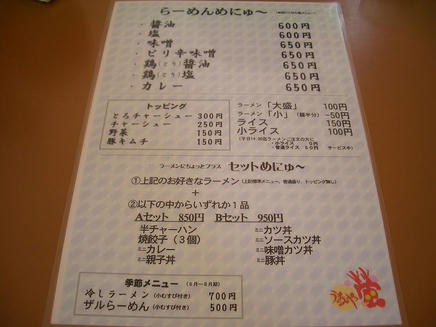 らーめんめにゅ～
・醤油 600円
・塩 600円
・味噌 650円
・ピリ辛味噌 650円
・鶏(とり)醤油 650円
・鶏(とり)塩 650円
・カレー 650円
トッピング
とろチャーシュー 300円
チャーシュー 250円
野菜 150円
豚キムチ 150円
ラーメン「大盛」 100円
ラーメン「小」(麺半分) -50円
ライス 150円
小ライス 100円
・小ライス 0円
・普通ライス 50円 サービス中)
ラーメンにちょっとプラス セットめにゅ～
①上記のお好きなラーメン(上記標準メニュー、普通盛り、トッピング無し)
+
②以下の中からいずれか1品
Aセット 850円 Bセット 950円
半チャーハン
焼餃子(3個)
ミニカレー
ミニ親子丼
ミニカツ丼
ミニソースカツ丼
ミニ味噌カツ丼
ミニ豚丼
季節メニュー
冷しラーメン(小むすび付き) 700円
ザルらーめん(小むすび付き) 500円